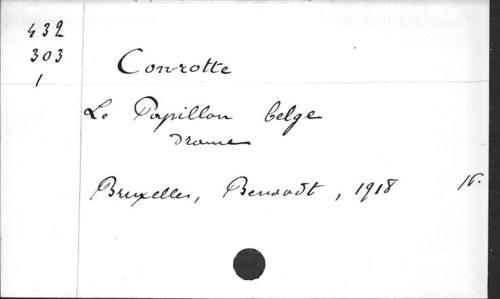 432
303
1
Conrotte
Le Papillon belge
drame
Bruxelles, Benoidt, 1918 16.